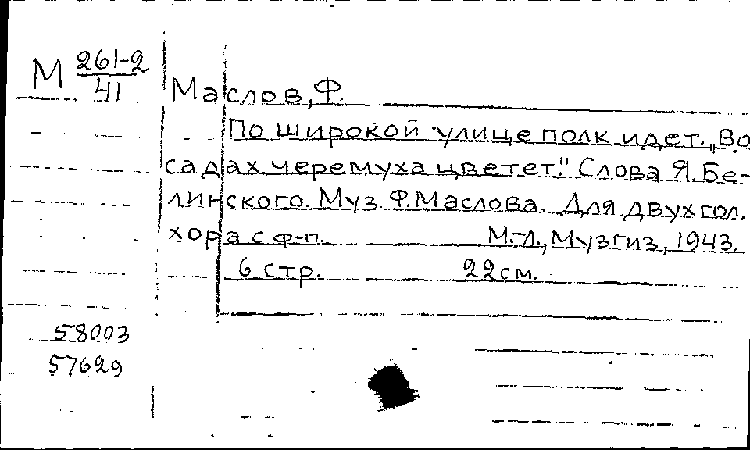 М 261-2
41
Маслов, Ф.
По широкой улице полк идет. „Во
садах черемуха цветет." Слова Я. Бе-
линского. Муз. Ф. Маслова. Для двухгол.
хора с ф-п. М.-Л., Музгиз, 1943.
6 стр. 22 см.
58003
57629